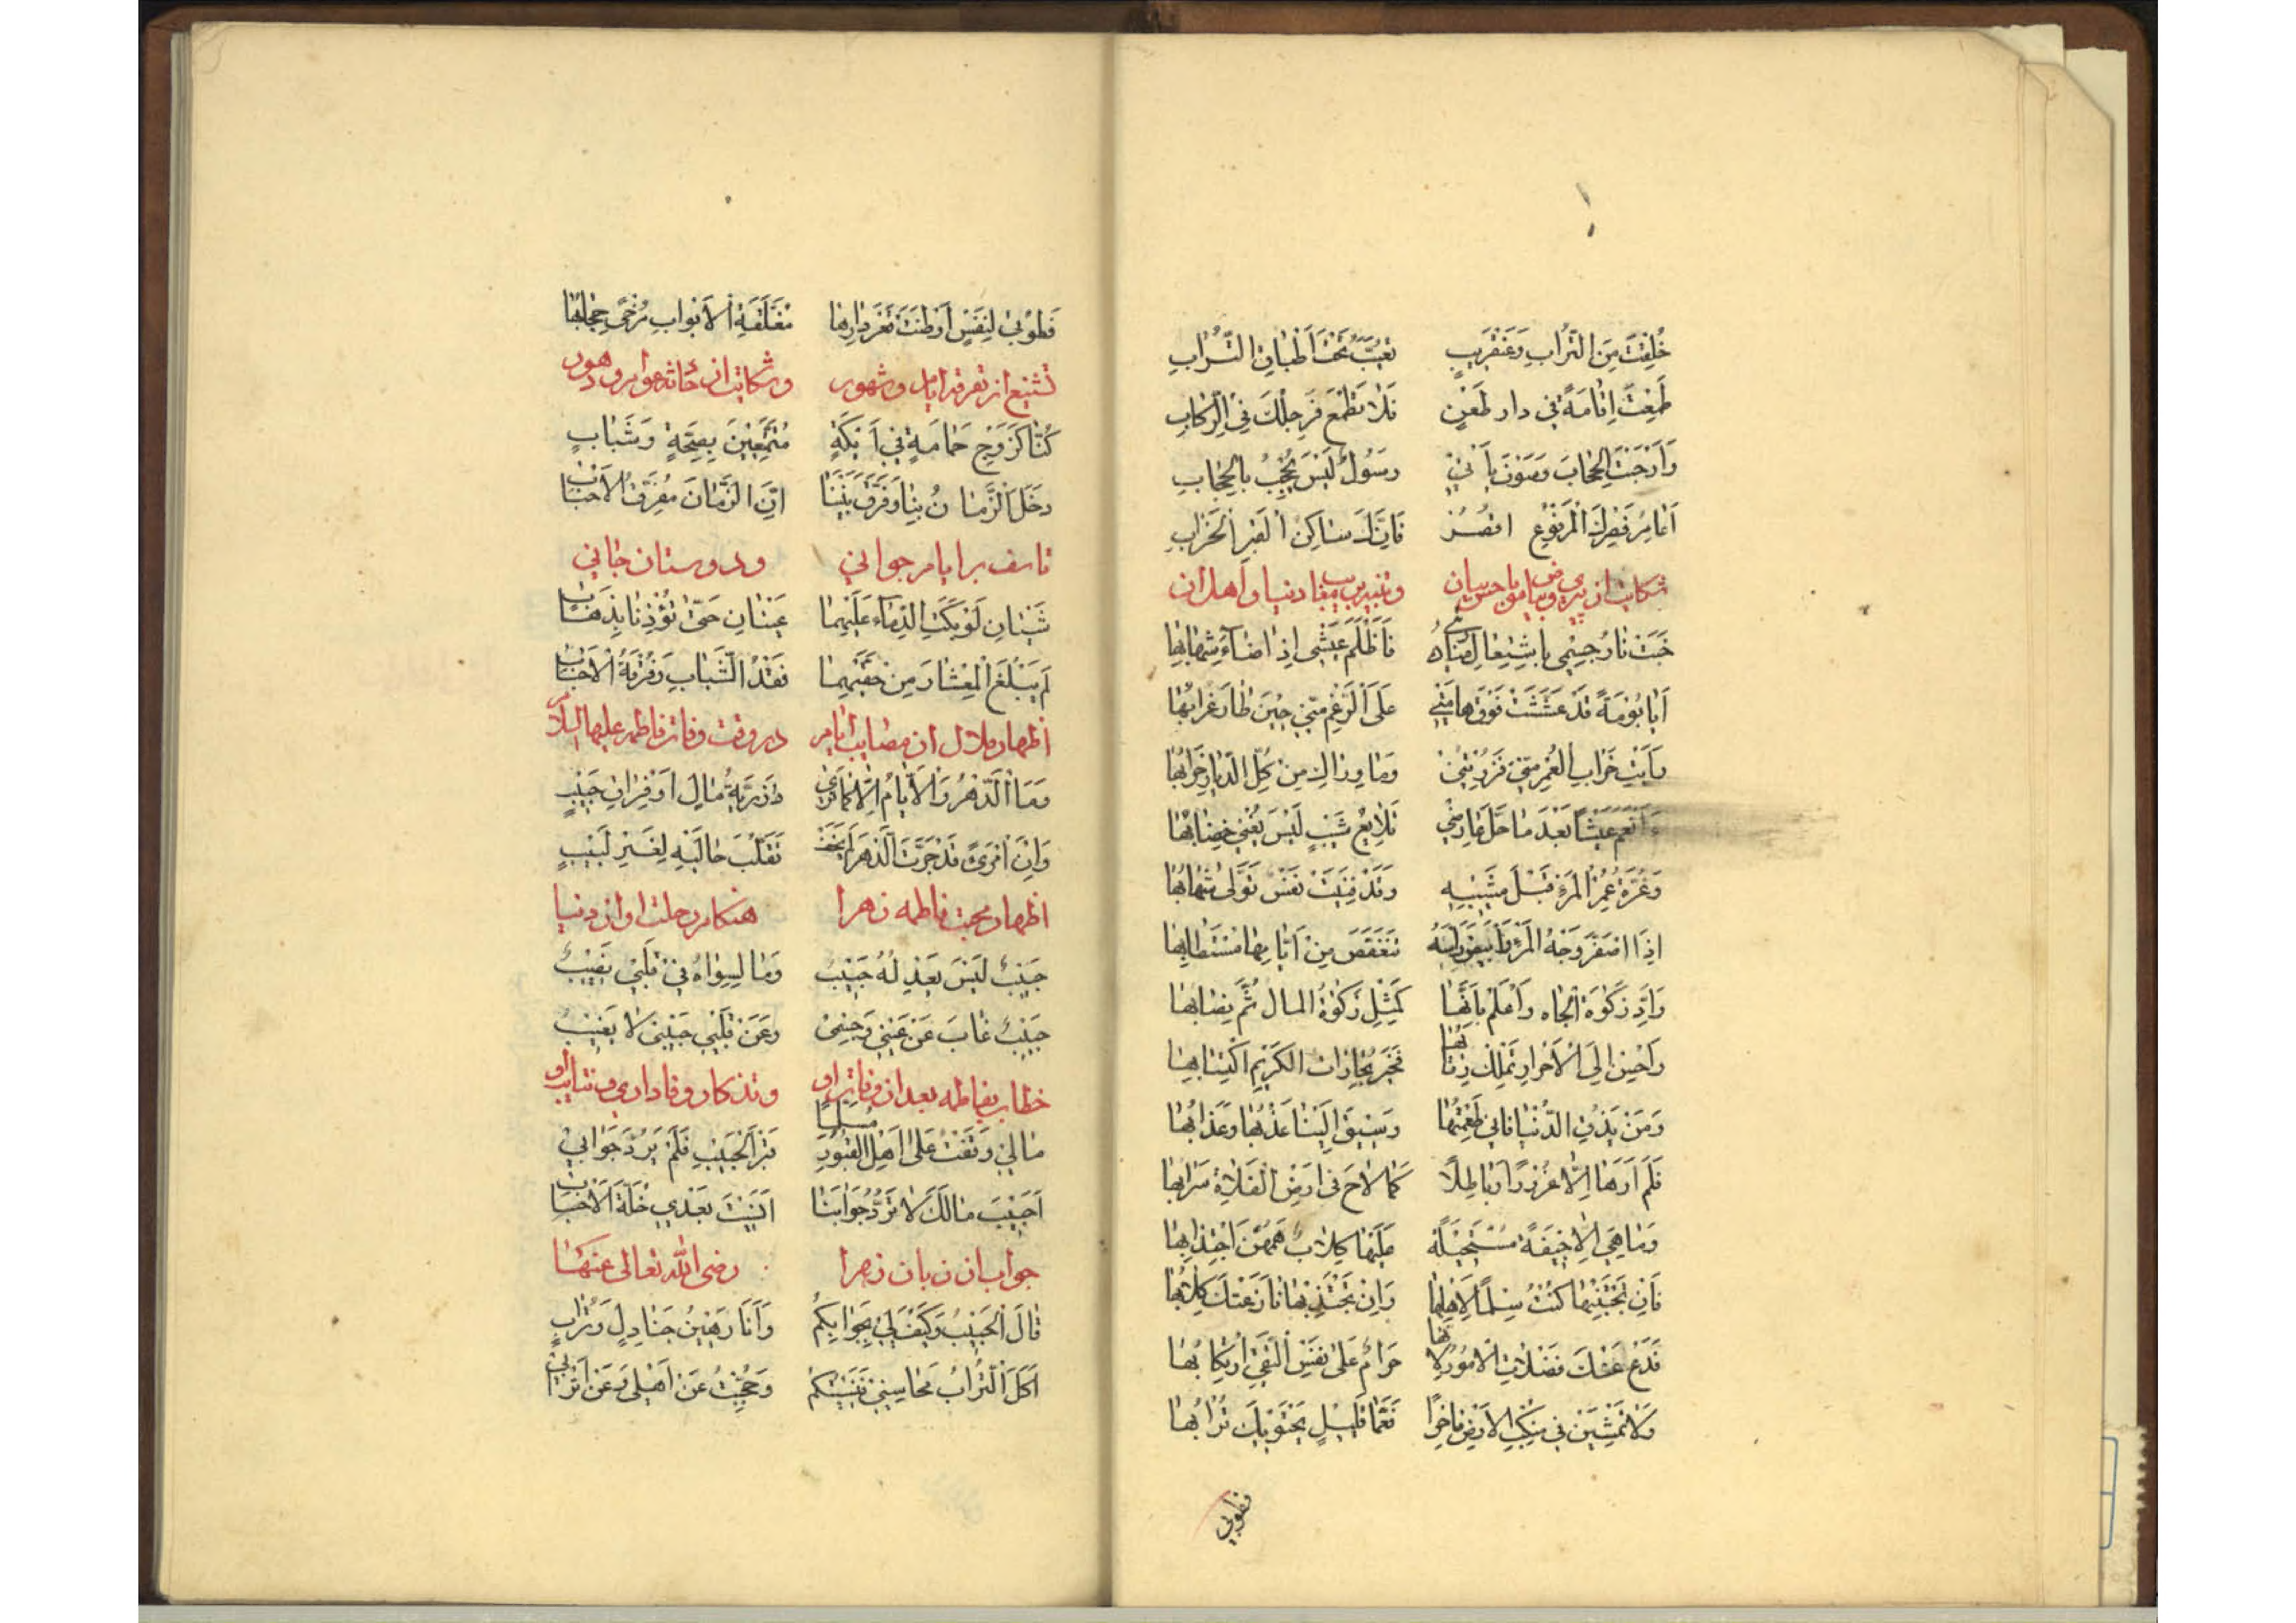 خُلِقْتَ مِنَ التُّرَابِ وَعَنْقَرِيبٍ تُغَيَّبُ تَحْتَ أَطْبَاقِ التُّرَابِ
طَمِعْتَ إِقَامَةً فِي دَارِ ظَعْنٍ فَلَا تَطْمَعْ فَرِجْلُكَ فِي الرِّكَابِ
وَأَرْخَيْتَ الْحِجَابَ وَسَوْفَ يَأْتِي رَسُولٌ لَيْسَ يُحْجَبُ بِالْحِجَابِ
أَعَامِرَ قَصْرِكَ الْمَرْفُوعِ اقْصُرْ فَإِنَّكَ سَاكِنُ الْقَبْرِ الْخَرَابِ
شكايت از پيرى وتنبيه بر فنا دنيا واهل ان
خَبَتْ نَارُ جِسْمِي بِاشْتِعَالِ فَأَظْلَمَ عَيْشِي إِذْ أَضَاءَ شِهَابُهَا
أَيَا بُومَةً قَدْ عَشَّشَتْ فَوْقَ هَامَتِي عَلَى الرَّغْمِ مِنِّي حِينَ طَارَ غُرَابُهَا
رَأَيْتِ خَرَابَ الْعُمْرِ مِنِّي فَزُرْتِنِي وَمَأْوَاكِ مِنْ كُلِّ الدِّيَارِ خَرَابُهَا
ءَأَنْعَمُ عَيْشًا بَعْدَ مَا حَلَّ عَارِضِي طَلَايِعُ شَيْبٍ لَيْسَ يُغْنِي خِضَابُهَا
وَغُرَّةُ عُمْرِ الْمَرْءِ قَبْلَ مَشِيبِهِ وَقَدْ فَنِيَتْ نَفْسٌ تَوَلَّى شَبَابُهَا
إِذَا اصْفَرَّ وَجْهُ الْمَرْءِ وَابْيَضَّ رَأْسُهُ تَنَغَّصَ مِنْ أَيَّامِهَا مُسْتَطَابُهَا
وَأَدِّ زَكٰوةَ الْجَاهِ وَاعْلَمْ بِأَنَّهَا كَمِثْلِ زَكٰوةِ الْمَالِ تَمَّ نِصَابُهَا
وَأَحْسِنْ إِلَى الْأَحْرَارِ تَمْلِكْ رِقَابَهَا فَخَيْرُ تِجَارَاتِ الْكَرِيمِ اكْتِسَابُهَا
وَمَنْ يَذُقِ الدُّنْيَا فَإِنِّي طَعِمْتُهَا وَسِيقَ إِلَيْنَا عَذْبُهَا وَعَذَابُهَا
فَلَمْ أَرَهَا إِلَّا غُرُورًا وَبَاطِلًا كَمَا لَاحَ فِي أَرْضِ الْفَلَاةِ سَرَابُهَا
وَمَا هِيَ إِلَّا جِيفَةٌ مُسْتَحِيلَةٌ عَلَيْهَا كِلَابٌ هَمُّهُنَّ اجْتِذَابُهَا
فَإِنْ تَجْتَنِبْهَا كُنْتَ سِلْمًا لِأَهْلِهَا وَإِنْ تَجْتَذِبْهَا نَازَعَتْكَ كِلَابُهَا
فَدَعْ عَنْكَ فَضْلَاتِ الْأُمُورِ فَإِنَّهَا حَرَامٌ عَلَى نَفْسِ التَّقِيِّ ارْتِكَابُهَا
وَلَا تَمْشِيَنْ فِي مَنْكِبِ الْأَرْضِ فَاخِرًا فَعَمَّا قَلِيلٍ يَحْتَوِيكَ تُرَابُهَا
فطوبى
فَطُوبَى لِنَفْسٍ أَوْطَنَتْ قَعْرَ دَارِهَا مُغَلَّقَةَ الْأَبْوَابِ مُرْخًى حِجَابُهَا
تشنيع از تفرقه ايام وشهور وشكايت از حادثه اعوام ودهور
كُنَّا كَزَوْجِ حَمَامَةٍ فِي أَيْكَةٍ مُتَمَتِّعِينَ بِصِحَّةٍ وَشَبَابِ
دَخَلَ الزَّمَانُ بِنَا وَفَرَّقَ بَيْنَنَا إِنَّ الزَّمَانَ مُفَرِّقُ الْأَحْبَابِ
تاسف بر ايام جوانى ودوستان جانى
شَيْئَانِ لَوْ بَكَتِ الدِّمَاءَ عَلَيْهِمَا عَيْنَانِ حَتَّى تُؤْذِنَا بِذَهَابِ
لَمْ يَبْلُغَا الْمِعْشَارَ مِنْ حَقَّيْهِمَا فَقْدُ الشَّبَابِ وَفُرْقَةُ الْأَحْبَابِ
اظهار ملال از مصايب ايام در وقت وفات فاطمه عليها السلام
وَمَا الدَّهْرُ وَالْأَيَّامُ إِلَّا كَمَا تَرَى رَزِيَّةُ مَالٍ أَوْ فِرَاقُ حَبِيبٍ
وَإِنَّ امْرَئً قَدْ جَرَّبَ الدَّهْرَ لَمْ يَخَفْ تَقَلُّبَ حَالَيْهِ لَغَيْرُ لَبِيبٍ
اظهار محبت فاطمه زهرا هنكام رحلت او از دنيا
حَبِيبٌ لَيْسَ يَعْدِلُهُ حَبِيبٌ وَمَا لِسِوَاهُ فِي قَلْبِي نَصِيبٌ
حَبِيبٌ غَابَ عَنْ عَيْنِي وَجِسْمِي وَعَنْ قَلْبِي حَبِيبِي لَا يَغِيبُ
خطاب بفاطمه بعد از وفات او وتذكار وفادارى وثناى او
مَا لِي وَقَفْتُ عَلَى أَهْلِ الْقُبُورِ مُسَلِّمًا قَبْرَ الْحَبِيبِ فَلَمْ يَرُدَّ جَوَابِي
أَحَبِيبُ مَا لَكَ لَا تَرُدُّ جَوَابَنَا أَنَسِيتَ بَعْدِي خُلَّةَ الْأَحْبَابِ
جواب از زبان زهرا رضى الله تعالى عنها
قَالَ الْحَبِيبُ وَكَيْفَ لِي بِجَوَابِكُمْ وَأَنَا رَهِينُ جَنَادِلٍ وَتُرَابٍ
أَكَلَ التُّرَابُ مَحَاسِنِي فَنَسِيتُكُمْ وَحُجِبْتُ عَنْ أَهْلِي وَعَنْ أَتْرَابِي